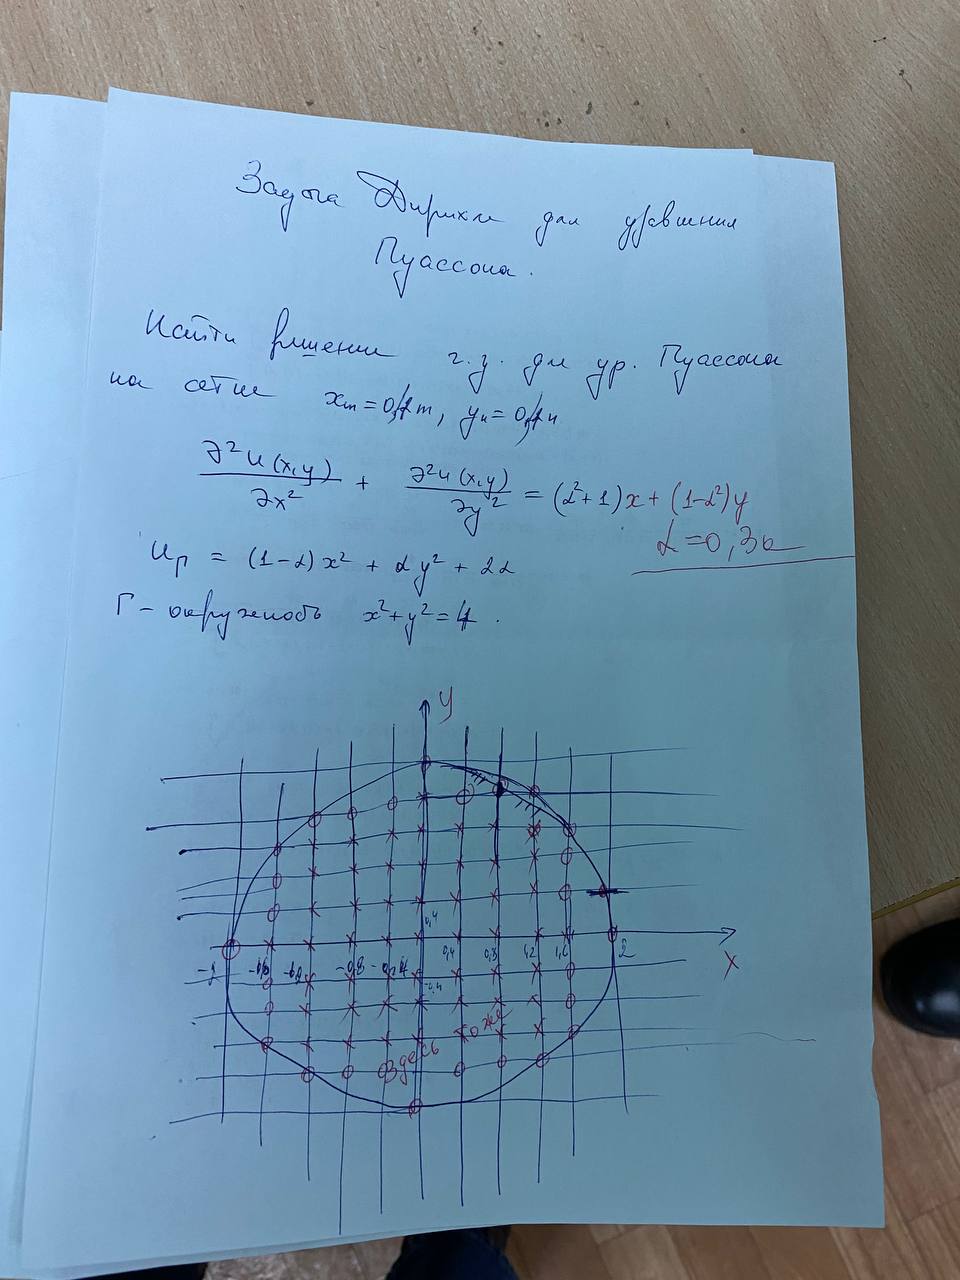 Задача Дирихле для уравнения
Пуассона.
Найти решение г.з. для ур. Пуассона
на сетке xₘ = 0,4m, yₙ = 0,4n
∂²u(x,y)/∂x² + ∂²u(x,y)/∂y² = (α²+1)x + (1-α²)y
α = 0,3k
u_Γ = (1-α)x² + αy² + 2α
Γ - окружность x² + y² = 4.
y
0,4
-0,8 -0,4 0,4 0,8 1,2 1,6 2
x
-0,4
Здесь тоже